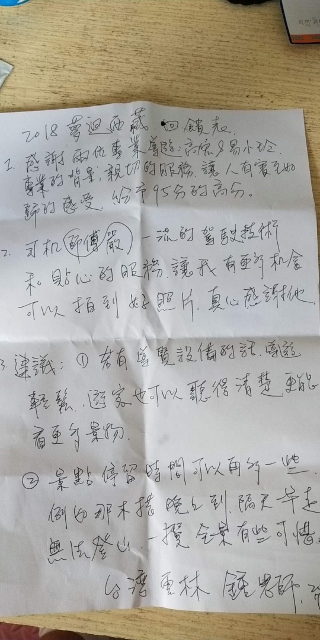 2018夢迴西藏 回饋表.
1. 感謝兩位專業導遊: 高原&易小玲
專業的背景, 親切的服務, 讓人有賓至如
歸的感受. 給予95分的高分。
2. 司机 師傅嚴 一流的駕駛技術
和貼心的服務讓我有更多机會
可以拍到好照片. 真心感謝他
3. 建議: ① 若有導覽設備的話. 導遊
輕鬆. 遊客也可以聽得清楚更能
看更多景物.
② 景點停留時間可以再多一些.
例如那木措晚上到. 隔天早起
無法登山. 一攬全景有些可惜.
台灣雲林 鍾老師.